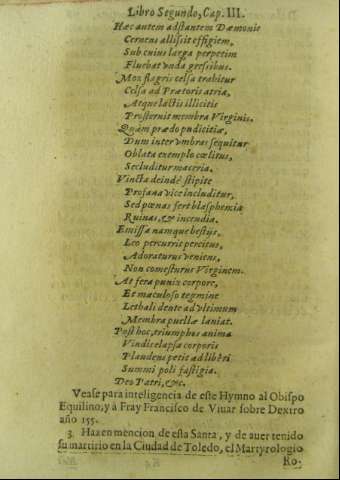 Libro Segundo, Cap. III.
Hæc autem adstantem Dæmonie
Cernens allisit effigiem,
Sub cuius larga perpetim
Fluebat vnda gressibus.
Mox flagris celsa trahitur
Celsa ad Prætoris atria,
Atque lactis illicitis
Prosternit membra Virginis.
Quàm prædo pudicitiæ,
Dum inter vmbras sequitur
Oblata exemplo cœlitus,
Secluditur maceria.
Vincta deindè stipite
Profana vice includitur,
Sed pœnas fert blasphemia
Ruinas, & incendia.
Emissa namque bestijs,
Leo percurrit percitus,
Adoraturus veniens,
Non comesturus Virginem.
At fera punix corpore,
Et maculoso tegmine
Lethali dente ad vltimum
Membra puellæ laniat.
Post hoc, triumphos anima
Vindis elapsa corporis
Plaudens petit ad libēri
Summi poli fastigia.
Deo Patri, &c.
Vease para inteligencia de este Hymno al Obispo
Equilino, y à Fray Francisco de Viuar sobre Dextro
año 155.
3. Hazen mencion de esta Santa, y de auer tenido
su martirio en la Ciudad de Toledo, el Martyrologio
Ro-